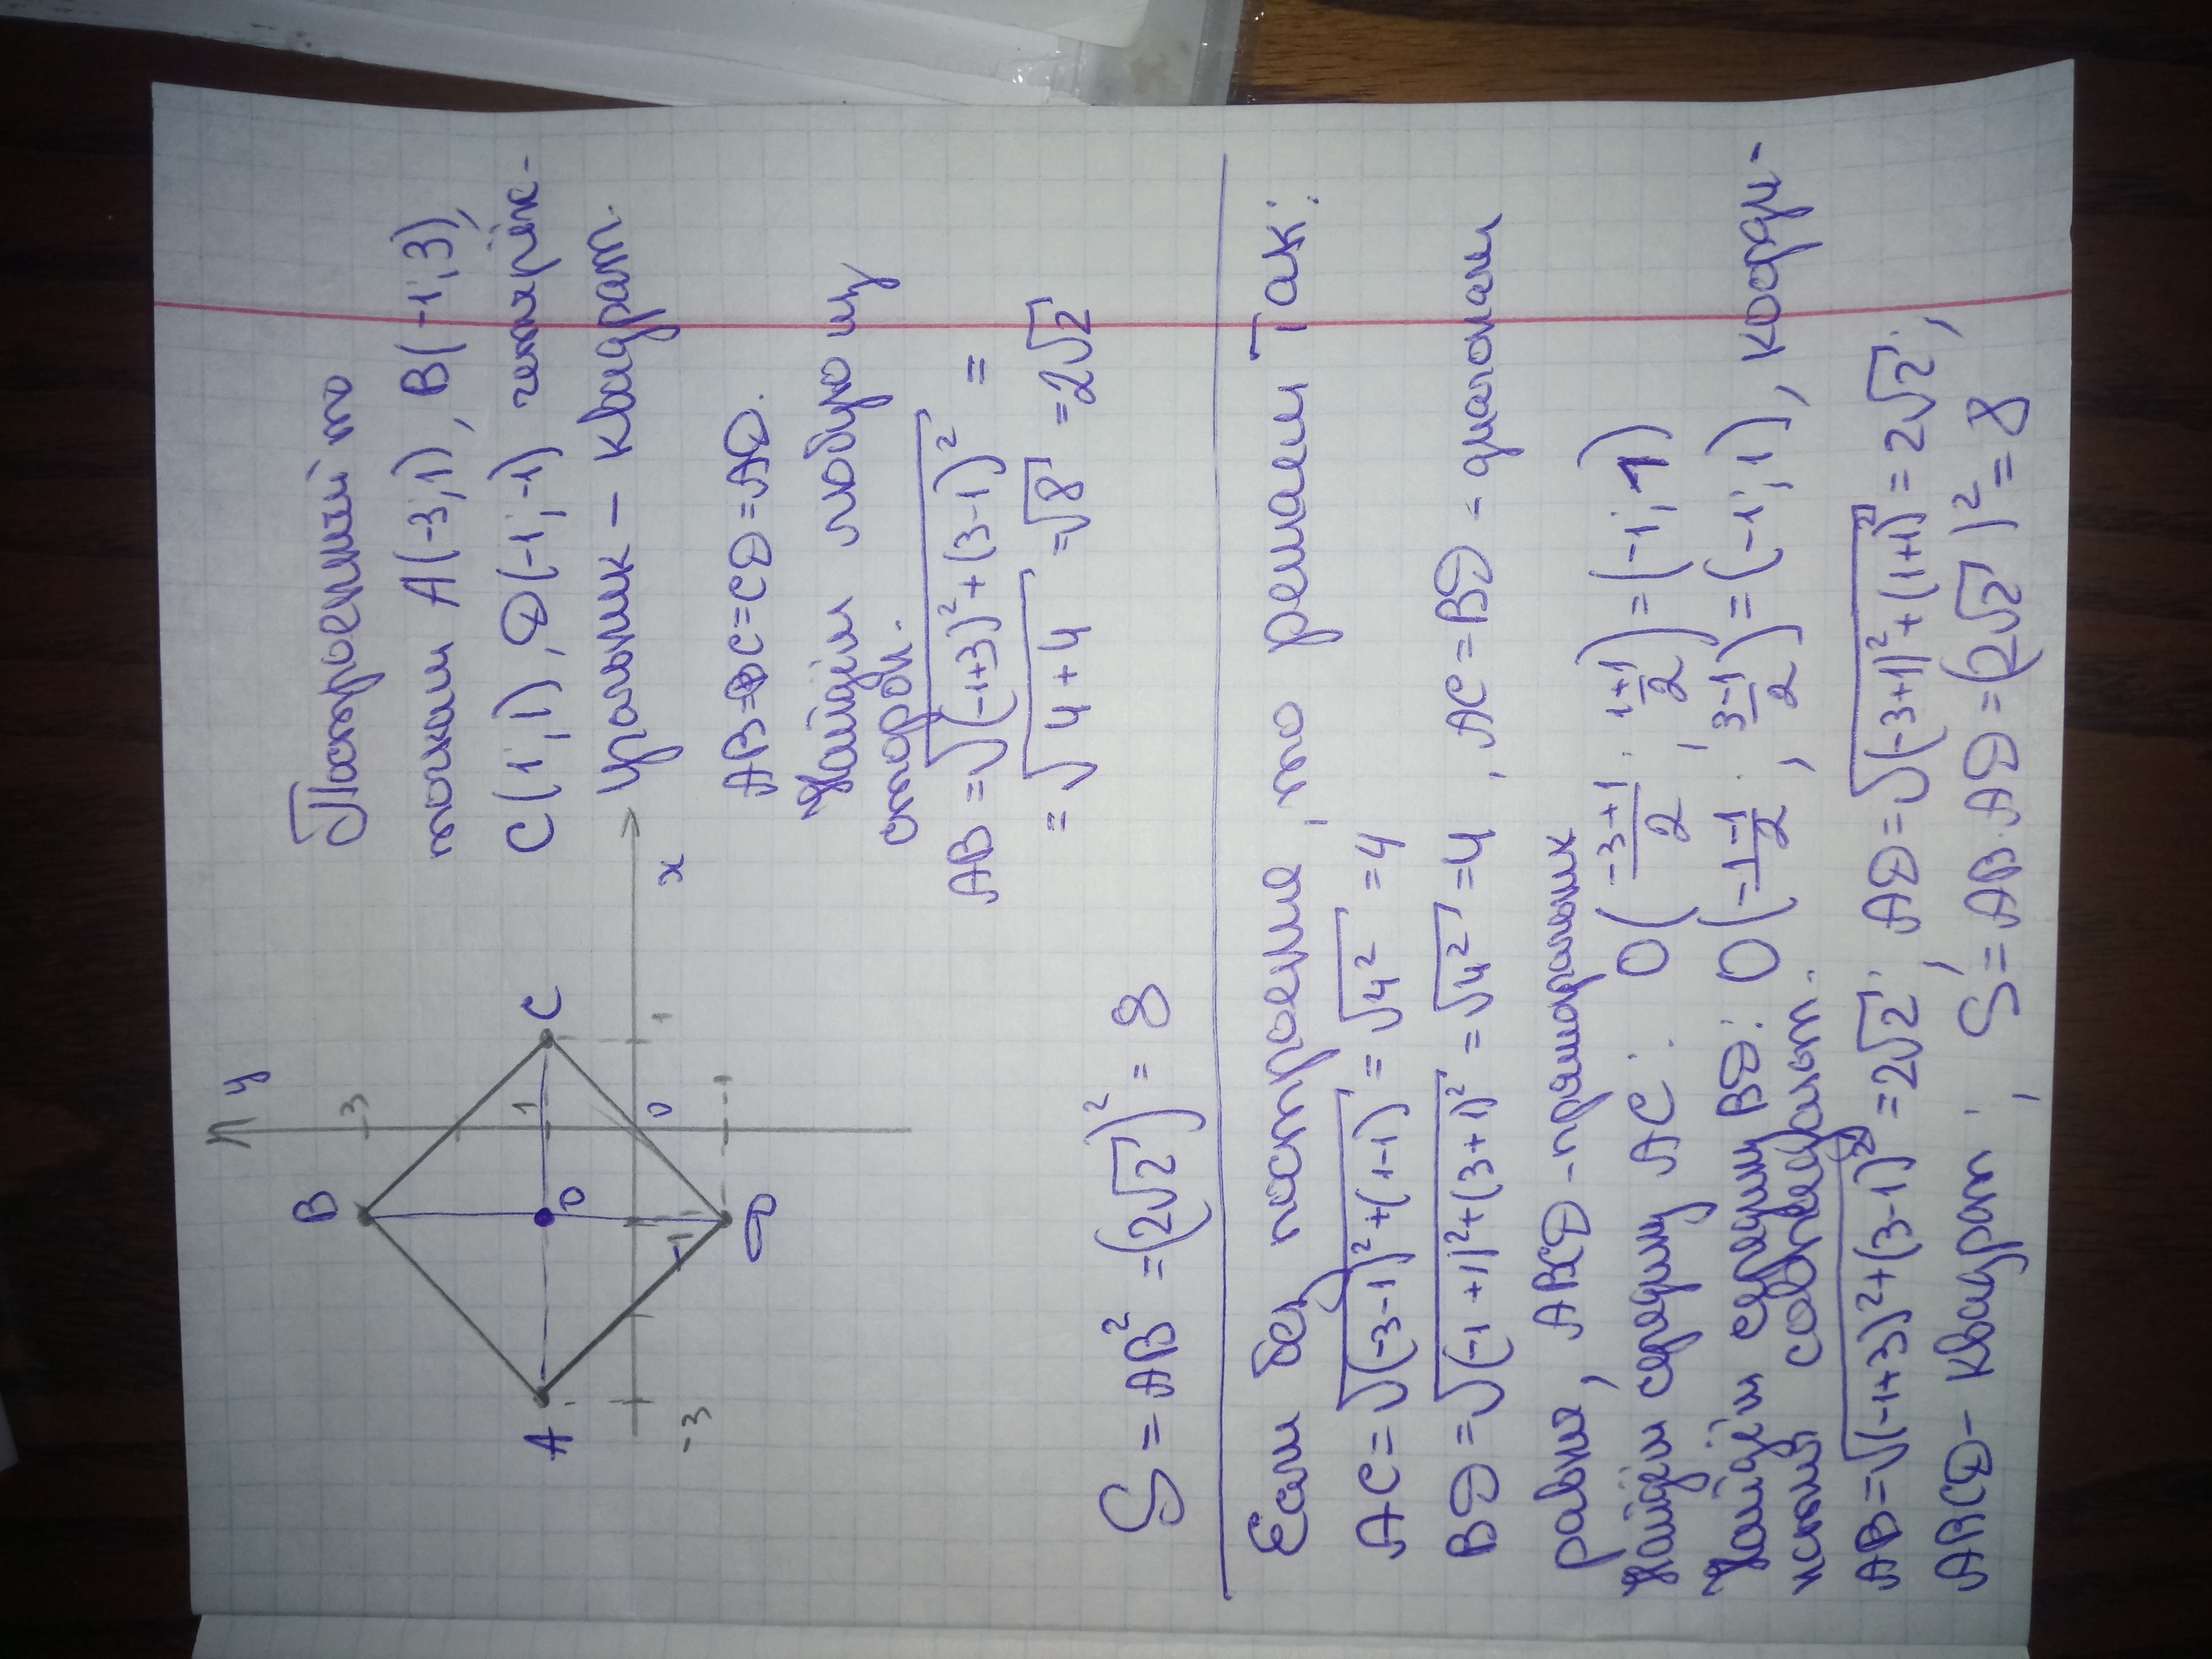 y
B
3
A
1
C
O
-3
-1
0
1
x
-1
D
Построений по
точкам A(-3;1), B(-1;3),
C(1;1), D(-1;-1) четырёх-
угольник – квадрат.
AB=BC=CD=AD.
Найдём любую из
сторон.
AB=√(-1+3)²+(3-1)² =
=√4+4 =√8 =2√2
S=AB²=(2√2)²=8
Если без построение, то решаем так:
AC=√(-3-1)²+(1-1)² =√4² =4
BD=√(-1+1)²+(3+1)² =√4² =4, AC=BD – диагонали
равны, ABCD – прямоугольник
Найдём середину AC: O(-3+1/2; 1+1/2)=(-1;1)
Найдём середину BD: O(-1-1/2; 3-1/2)=(-1;1), коорди-
наты совпадают.
AB=√(-1+3)²+(3-1)² =2√2, AD=√(-3+1)²+(1+1)² =2√2,
ABCD – квадрат; S=AB·AD=(2√2)²=8